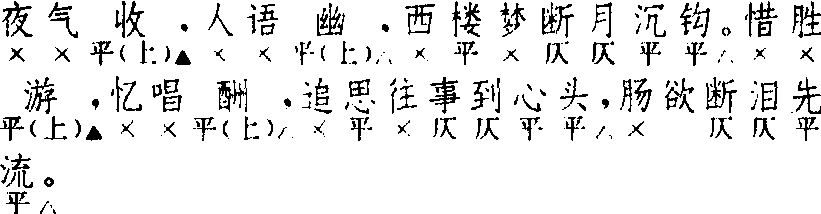 夜气 收 ，人语 幽 ，西楼梦断月沉钩。惜胜
× × 平(上)▲ × × 平(上)△ × 平 × 仄 仄 平 平△ × ×
游 ，忆唱 酬 ，追思往事到心头，肠欲断泪先
平(上)▲ × × 平(上)△ × 平 × 仄 仄 平 平 △ × 仄 仄 平
流。
平△